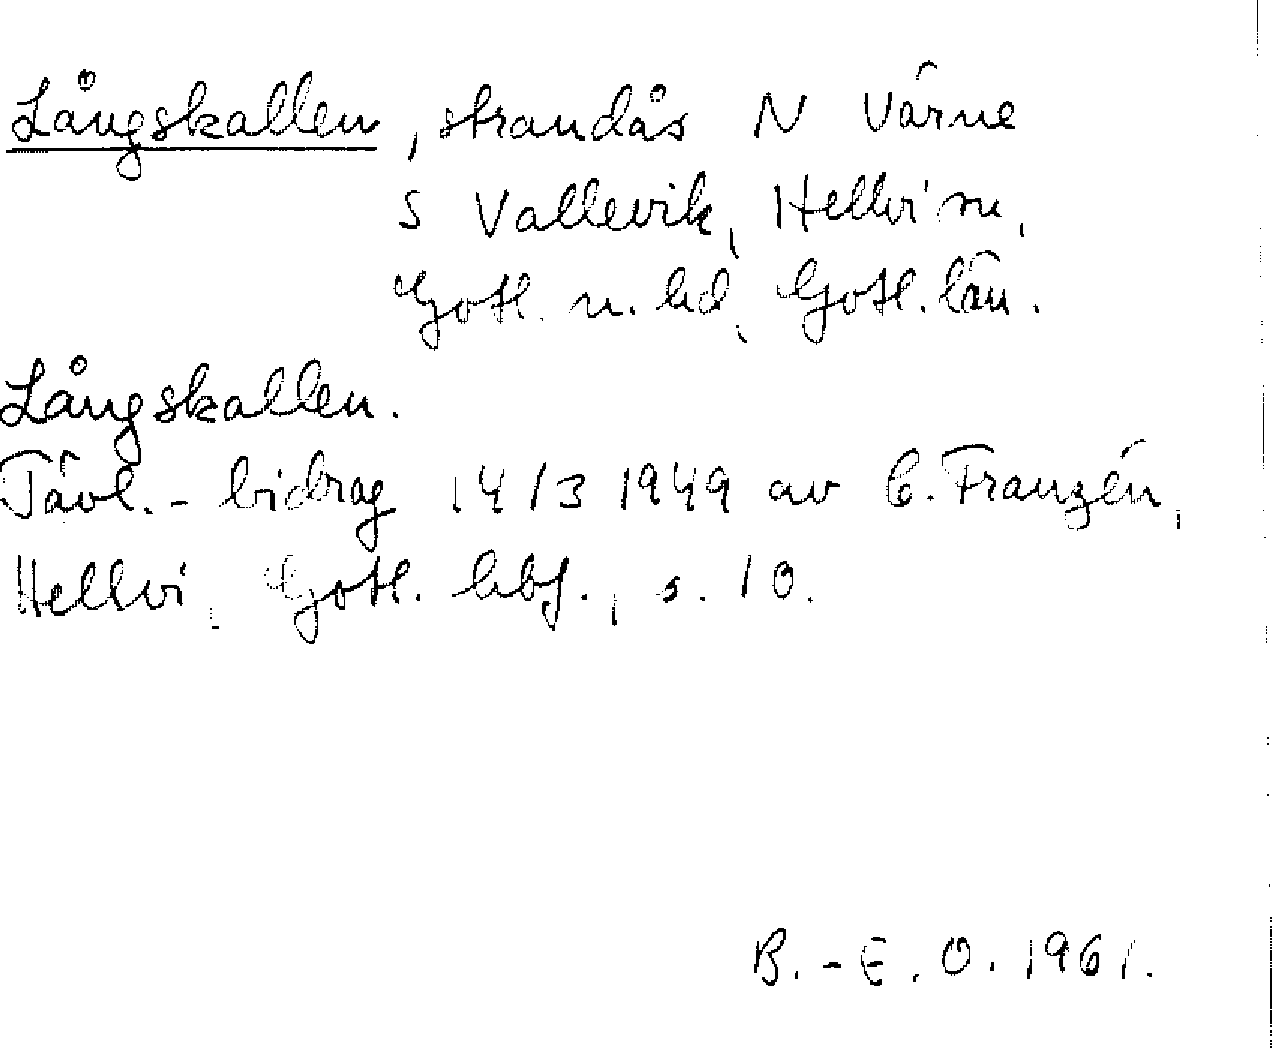 Långskallen, strandås N Värne
S Vallevik, Hellvi sn,
Gotl. n. hd, Gotl. län.
Långskallen.
Tävl.-bidrag 14/3 1949 av C. Franzén,
Hellvi, Gotl. hbf., s. 10.
B.-E. O. 1961.